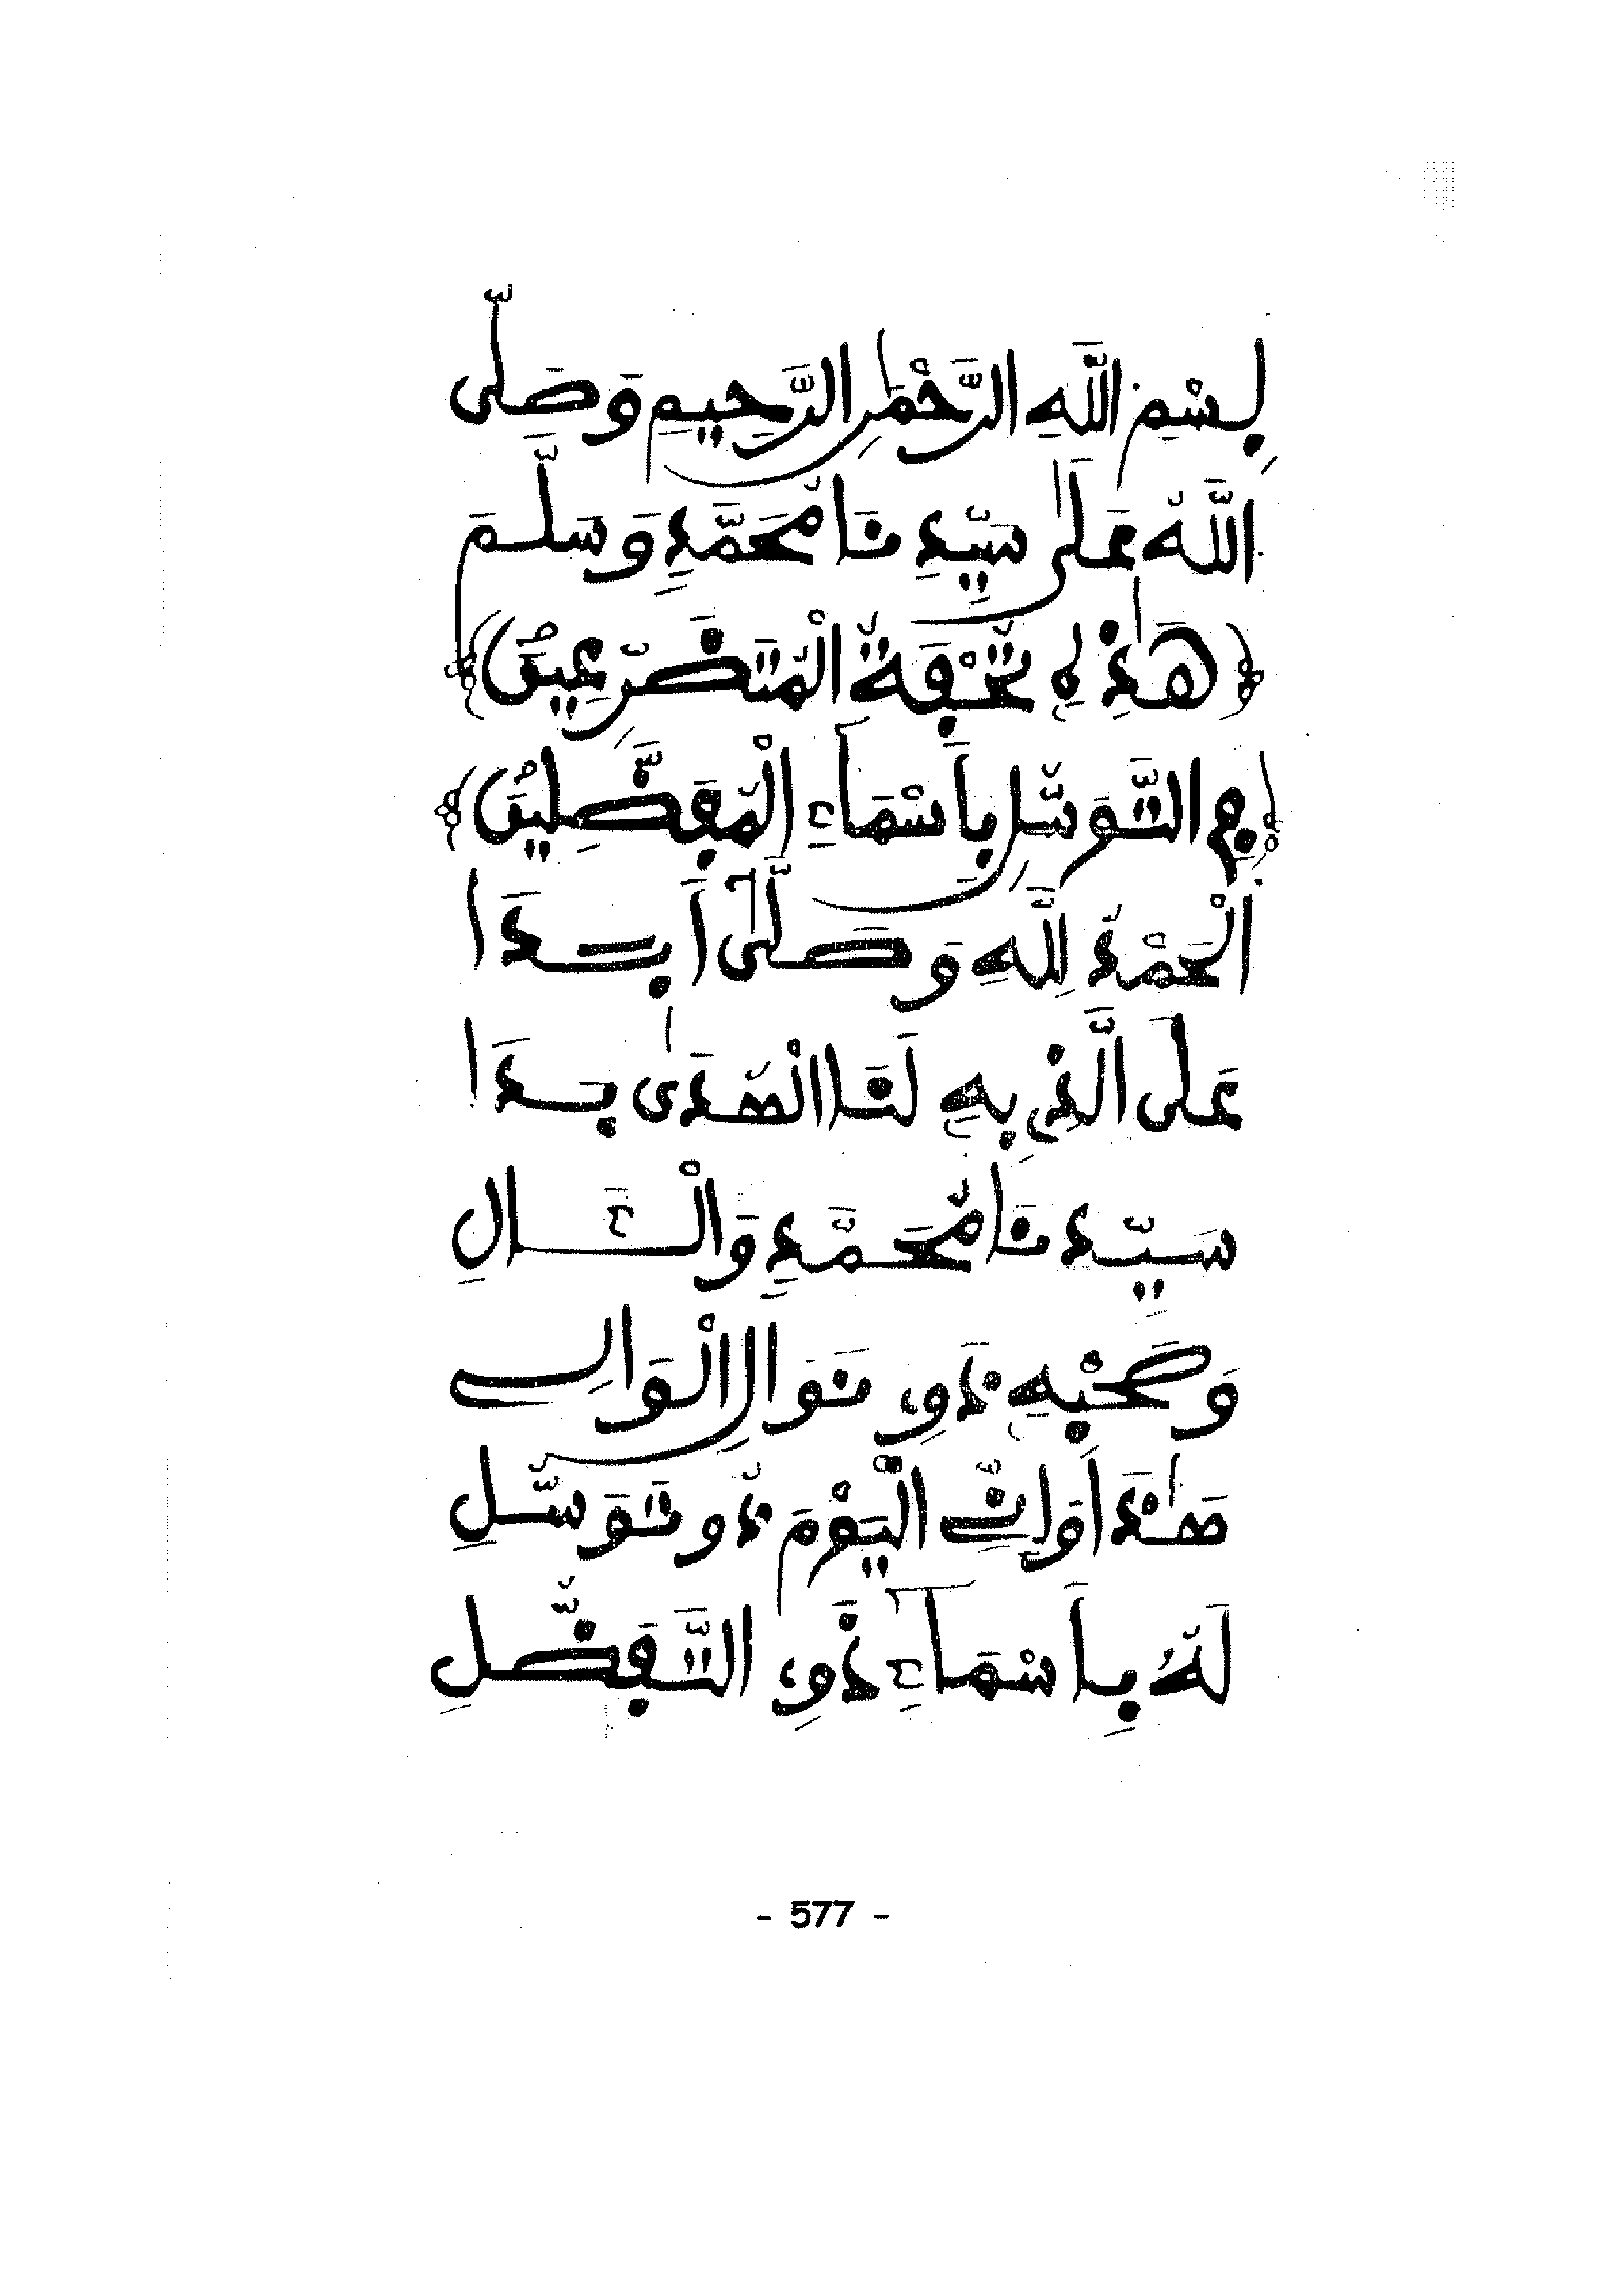 بِسْمِ اللَّهِ الرَّحْمَٰنِ الرَّحِيمِ وَصَلَّى
اللَّهُ عَلَىٰ سَيِّدِنَا مُحَمَّدٍ وَسَلَّمَ
﴿هَٰذِهِ تُحْفَةُ الْمُتَضَرِّعِينَ﴾
﴿فِي التَّوَسُّلِ بِأَسْمَاءِ الْمُفَضَّلِينَ﴾
اَلْحَمْدُ لِلَّهِ وَصَلَّى أَبَدَا
عَلَى الَّذِي بِهِ لَنَا الْهُدَىٰ بَدَا
سَيِّدِنَا مُحَمَّدٍ وَالْآلِ
وَصَحْبِهِ ذَوِي نَوَالِ الْوَالِ
هَٰذَا أَوَانُ الْيَوْمِ ذُو تَوَسُّلِ
لَهُ بِأَسْمَاءِ ذَوِي التَّفَضُّلِ
- 577 -